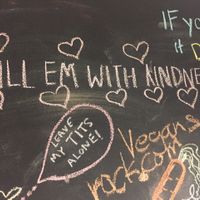 IF YO
it D
ILL EM WITH KINDNE
LEAVE
MY TITS
ALONE!
Vegans
rock.com